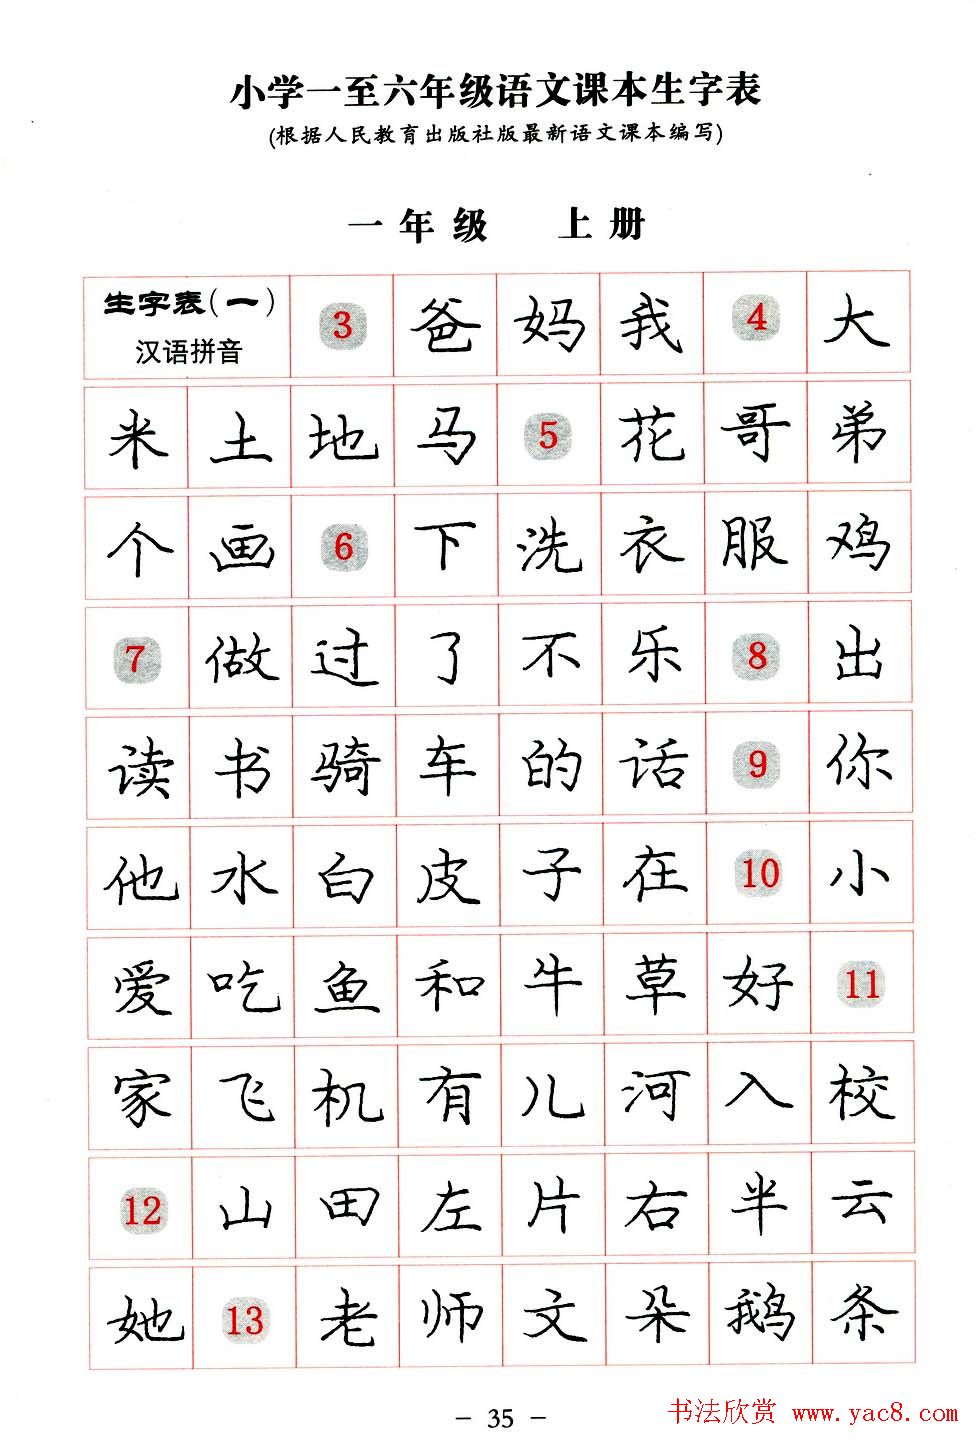 小学一至六年级语文课本生字表
(根据人民教育出版社版最新语文课本编写)
一年级 上册
生字表(一) 3 爸 妈 我 4 大
汉语拼音
米 土 地 马 5 花 哥 弟
个 画 6 下 洗 衣 服 鸡
7 做 过 了 不 乐 8 出
读 书 骑 车 的 话 9 你
他 水 白 皮 子 在 10 小
爱 吃 鱼 和 牛 草 好 11
家 飞 机 有 儿 河 入 校
12 山 田 左 片 右 半 云
她 13 老 师 文 朵 鹅 条
- 35 -
书法欣赏 www.yac8.com